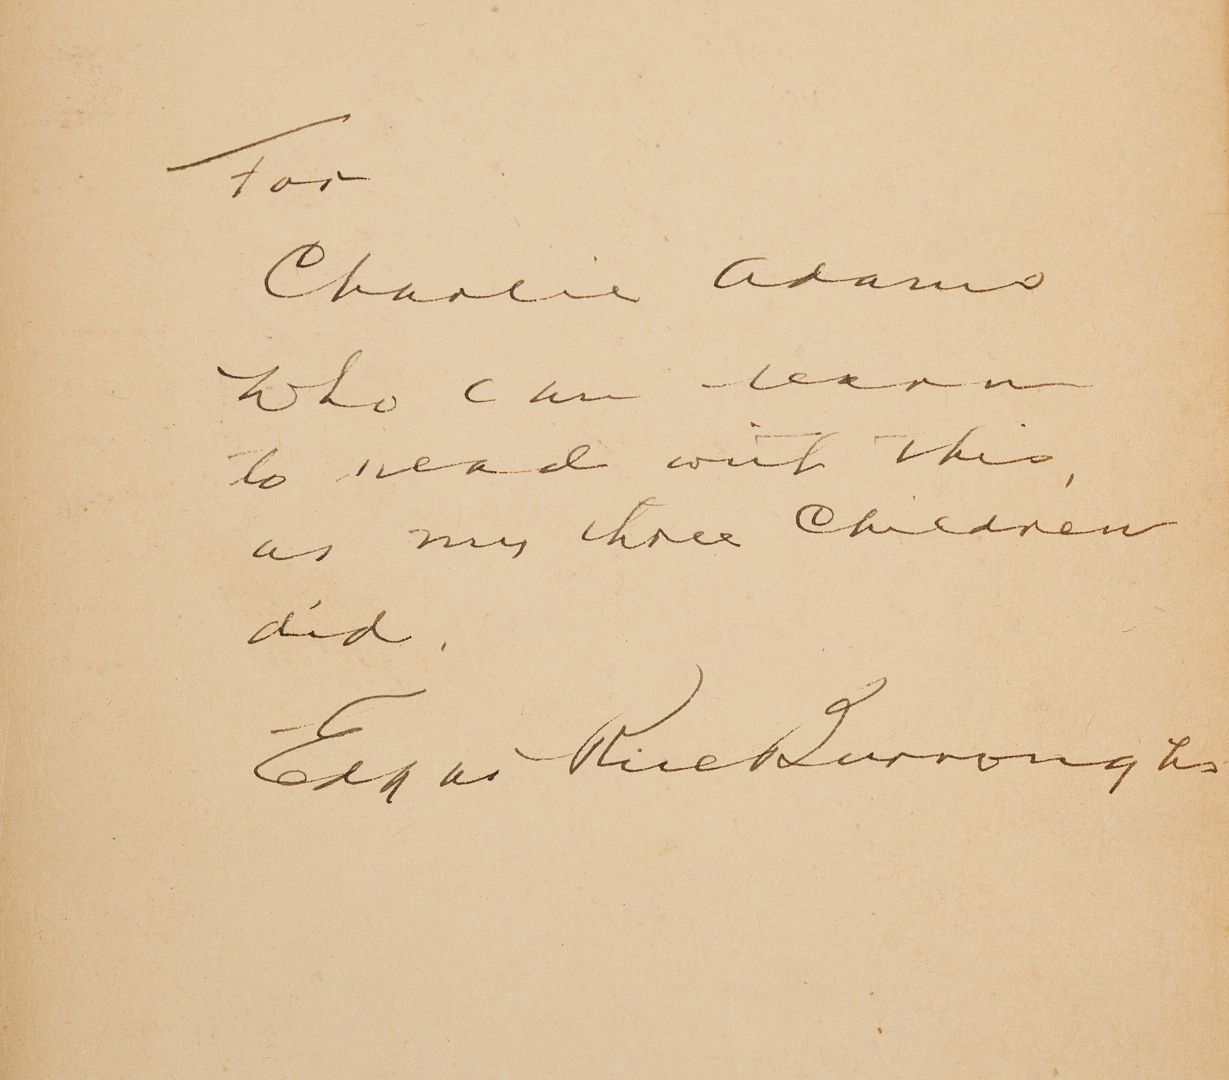 For
Charlie Adams
Who can learn
to read with this,
as my three children
did.
Edgar Rice Burroughs